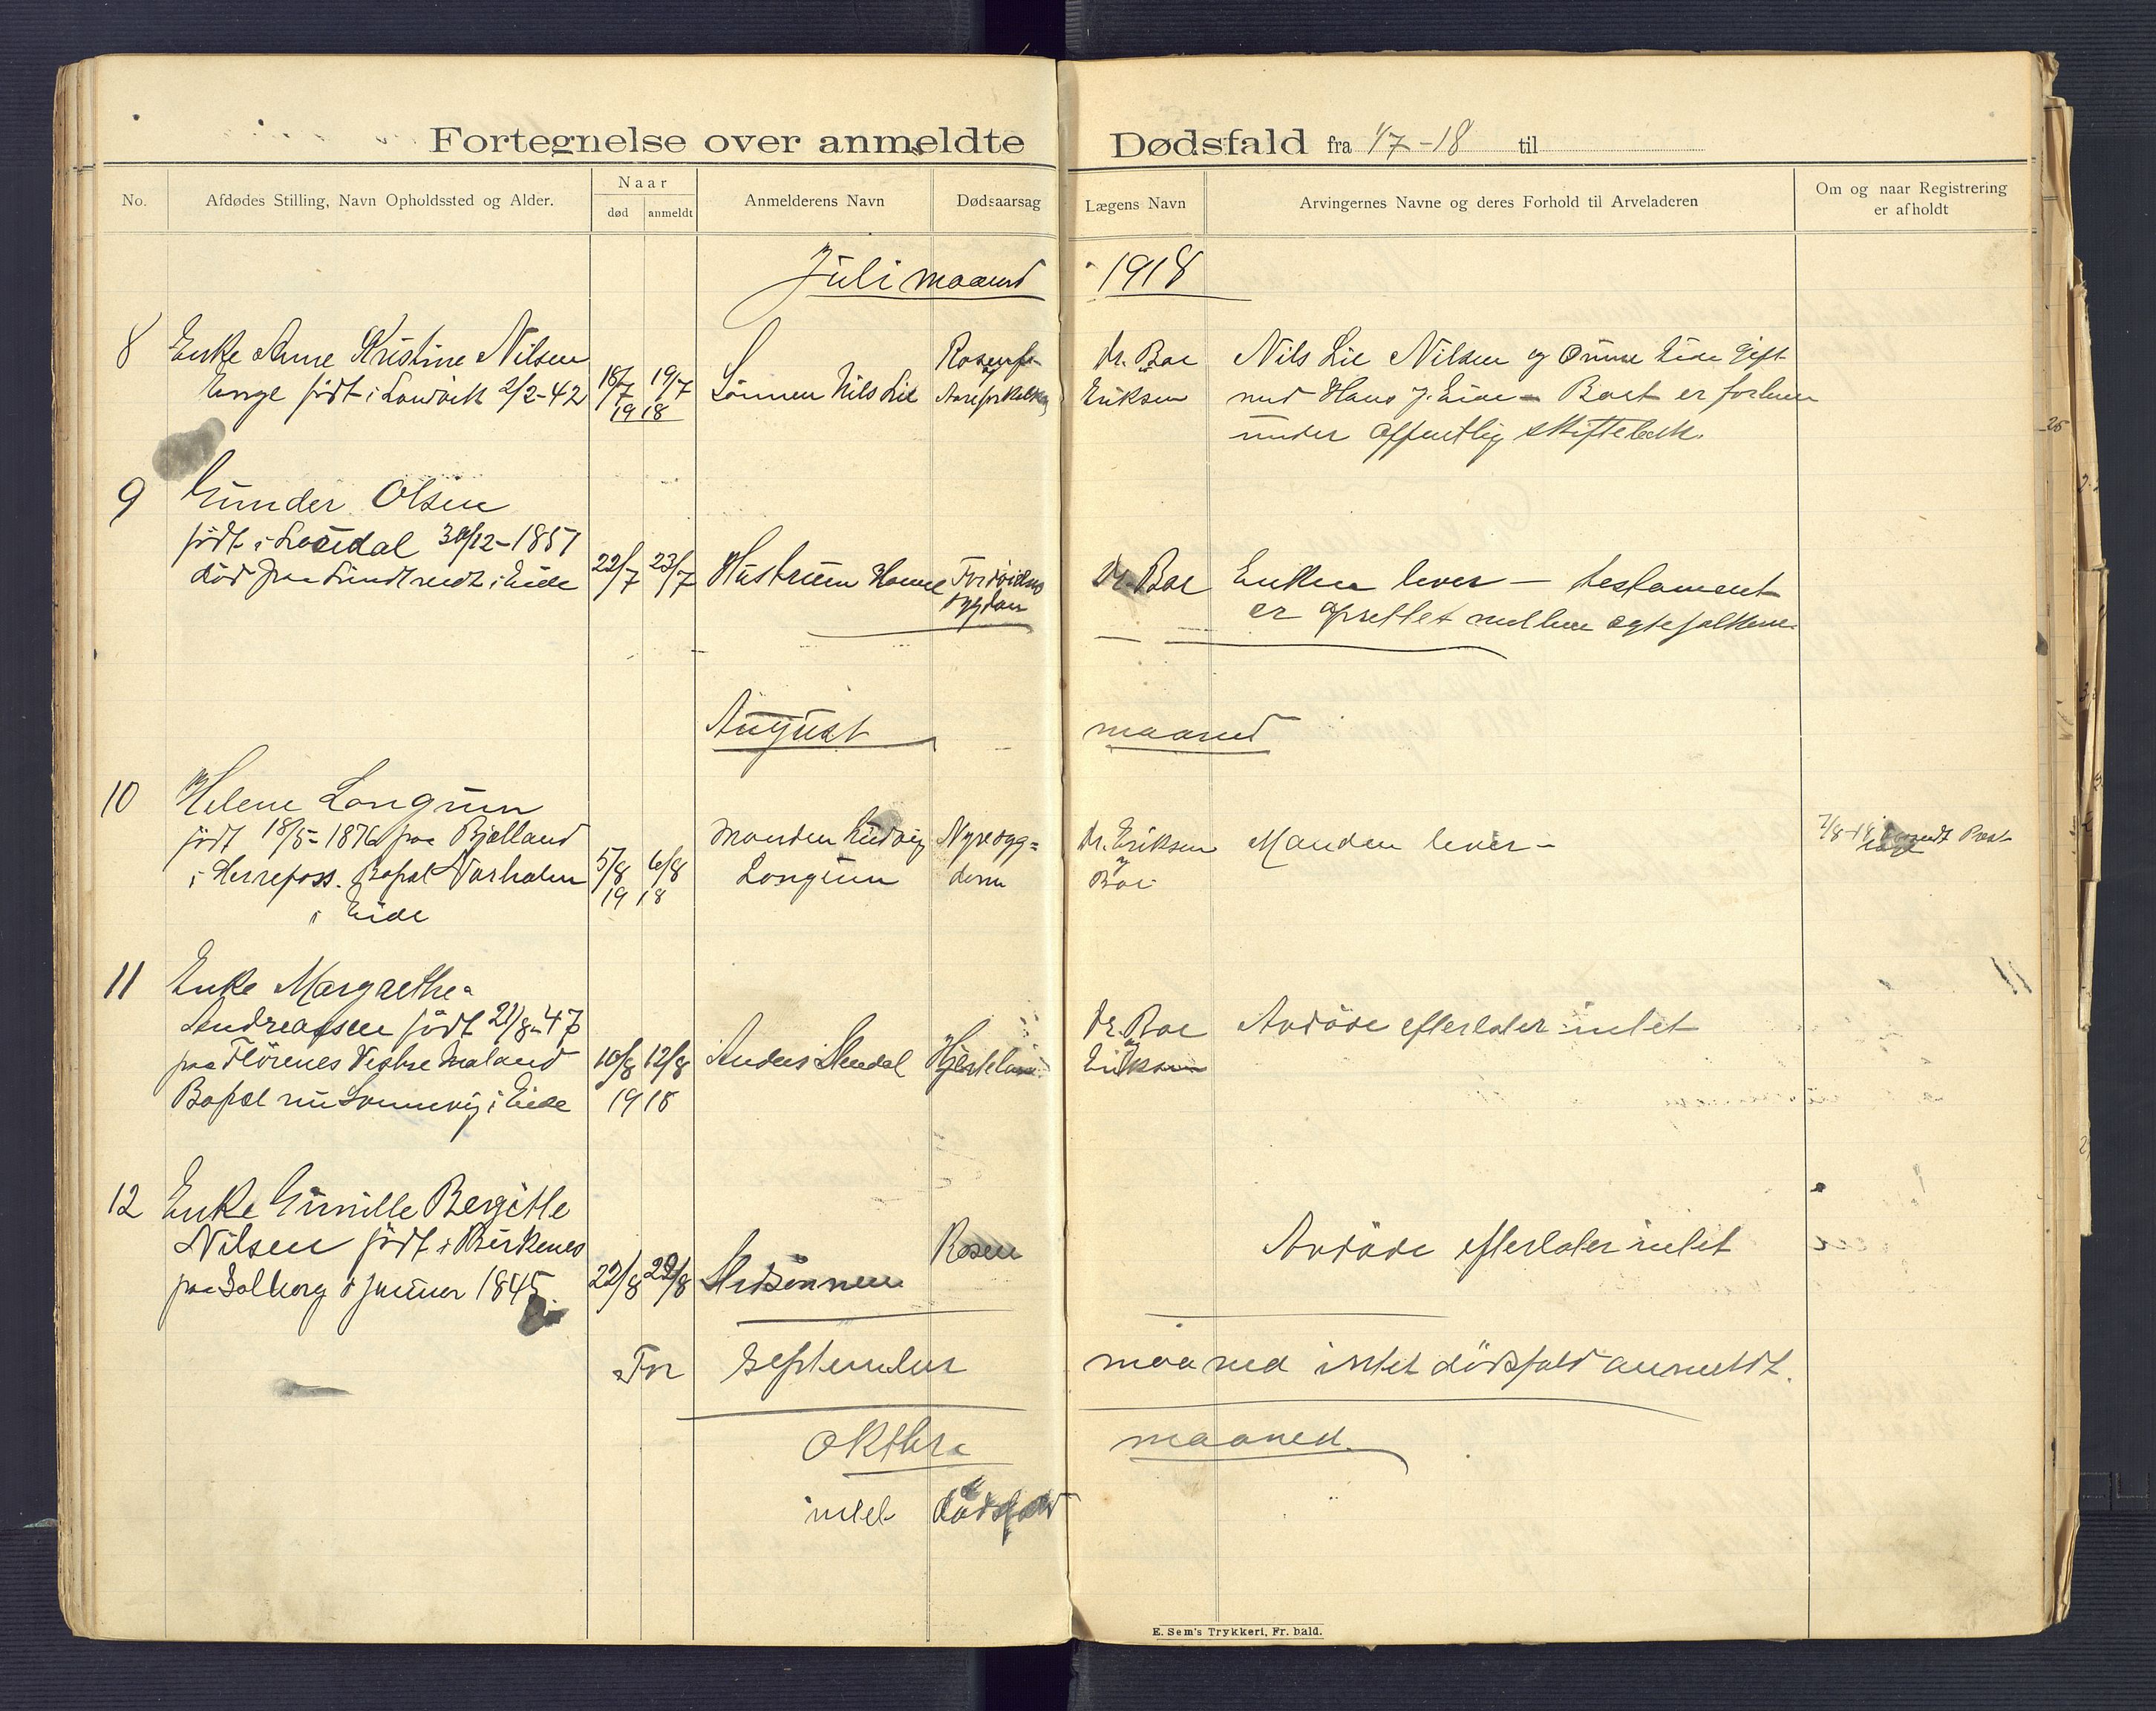 Fortegnelse over anmeldte Dødsfald fra 1/7-18 til
No.
Afdødes Stilling, Navn Opholdssted og Alder.
Naar
død
anmeldt
Anmelderens Navn
Dødsaarsag
Lægens Navn
Arvingernes Navne og deres Forhold til Arveladeren
Om og naar Registrering
er afholdt
Juli maaned 1918
8
Enke Anne Kristine Nilsen
født i Landvik 2/2-42
18/7 19/7
1918
Sønnen Nils Lie
Rosenf
og
Aareforkalkn
Dr. Boe
og
Eriksen
Nils Lie Nilsen og Gift
med Hans J. Eide - Boet er
under offentlig skiftebeh.
9
Gunder Olsen
født i 30/12-1857
død paa i Eide
22/7 23/7
Hustruen
sygdom
Dr. Boe
Enken lever - testament
er oprettet mellem egtefolkene.
August maaned
10
Helene Longum
født 18/5-1876 paa Bjelland
i Herrefoss. Bopæl
i Eide
5/8 6/8
1918
Manden Ludvig
Longum
Nyresyg=
dom
Dr. Eriksen
og
Boe
Manden lever -
7/8-18
11
Enke Margrethe
Andreassen født 21/8-47
paa Flørenes Vestre Moland
Bopæl nu i Eide
10/8 12/8
1918
Anders
Dr. Boe
og
Eriksen
Avdøde efterlater intet
12
Enke Gunille Bergitte
Nilsen født i Birkenes
paa 8 januar 1845.
22/8 22/8
Rosen
Avdøde efterlater intet
For september maaned intet dødsfald anmeldt.
Oktbr. maaned.
intet dødsfald
E. Sem's Trykkeri, Fr. hald.